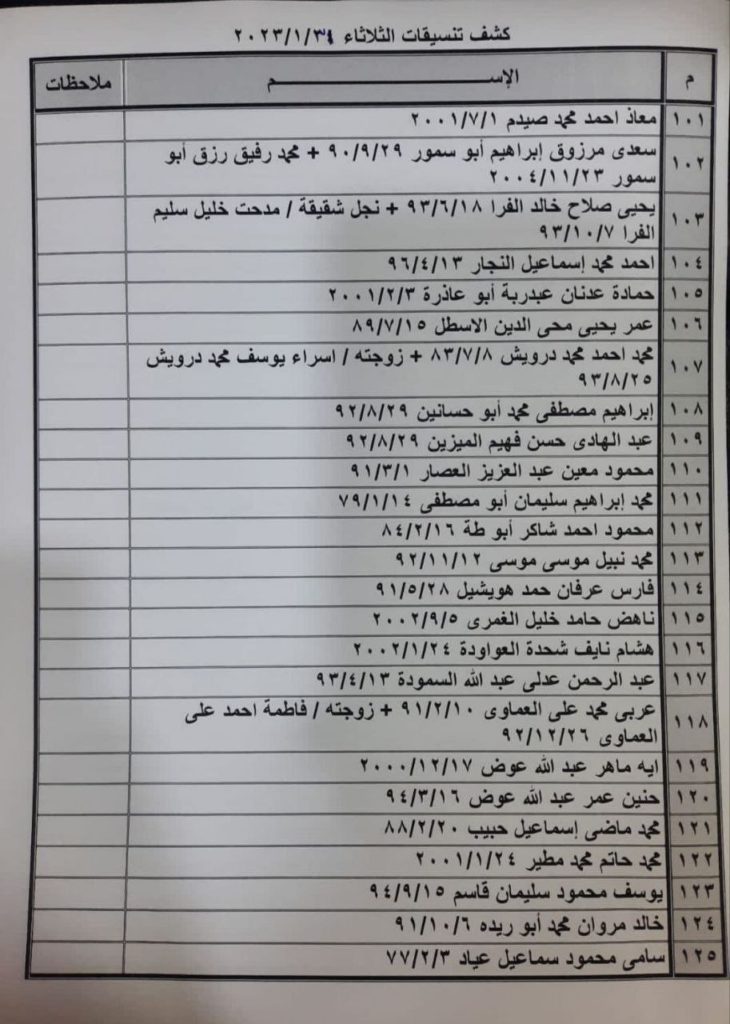 كشف تنسيقات الثلاثاء ٢٠٢٣/١/٣١
م الإســـــــــم ملاحظات
١٠١ معاذ احمد محمد صيدم ٢٠٠١/٧/١
١٠٢ سعدى مرزوق إبراهيم أبو سمور ٩٠/٩/٢٩ + محمد رفيق رزق أبو
سمور ٢٠٠٤/١١/٢٣
١٠٣ يحيى صلاح خالد الفرا ٩٣/٦/١٨ + نجل شقيقة / مدحت خليل سليم
الفرا ٩٣/١٠/٧
١٠٤ احمد محمد إسماعيل النجار ٩٦/٤/١٣
١٠٥ حمادة عدنان عبدربة أبو عاذرة ٢٠٠١/٢/٣
١٠٦ عمر يحيى محى الدين الاسطل ٨٩/٧/١٥
١٠٧ محمد احمد محمد درويش ٨٣/٧/٨ + زوجته / اسراء يوسف محمد درويش
٩٣/٨/٢٥
١٠٨ إبراهيم مصطفى محمد أبو حسانين ٩٢/٨/٢٩
١٠٩ عبد الهادى حسن فهيم الميزين ٩٢/٨/٢٩
١١٠ محمود معين عبد العزيز العصار ٩١/٣/١
١١١ محمد إبراهيم سليمان أبو مصطفى ٧٩/١/١٤
١١٢ محمود احمد شاكر أبو طة ٨٤/٢/١٦
١١٣ محمد نبيل موسى موسى ٩٢/١١/١٢
١١٤ فارس عرفان حمد هويشيل ٩١/٥/٢٨
١١٥ ناهض حامد خليل الغمرى ٢٠٠٢/٩/٥
١١٦ هشام نايف شحدة العواودة ٢٠٠٢/١/٢٤
١١٧ عبد الرحمن عدلى عبد الله السمودة ٩٣/٤/١٣
١١٨ عربى محمد على العماوى ٩١/٢/١٠ + زوجته / فاطمة احمد على
العماوى ٩٢/١٢/٢٦
١١٩ ايه ماهر عبد الله عوض ٢٠٠٠/١٢/١٧
١٢٠ حنين عمر عبد الله عوض ٩٤/٣/١٦
١٢١ محمد ماضى إسماعيل حبيب ٨٨/٢/٢٠
١٢٢ محمد حاتم محمد مطير ٢٠٠١/١/٢٤
١٢٣ يوسف محمود سليمان قاسم ٩٤/٩/١٥
١٢٤ خالد مروان محمد أبو ريده ٩١/١٠/٦
١٢٥ سامى محمود سماعيل عياد ٧٧/٢/٣